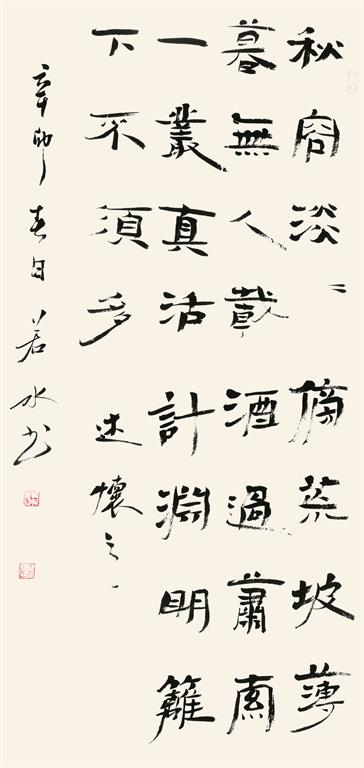 秋容淡〻傍菜坡薄
暮無人載酒過蕭索
一叢真活計淵明籬
下不須多 述懷之一
辛卯春日若水书